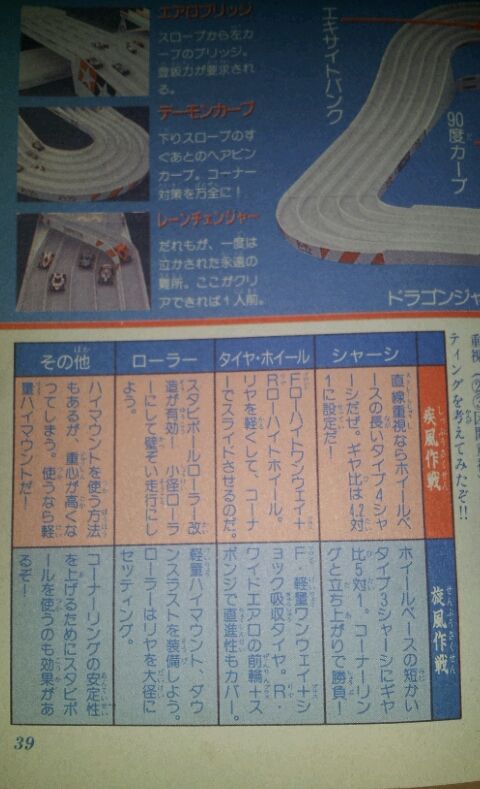 エアロブリッジ
スロープから左カ
ーブのブリッジ。
登坂力が要求され
る。
デーモンカーブ
下りスロープのす
ぐあとのヘアピン
カーブ。コーナー
対策を万全に！
レーンチェンジャー
だれもが、一度は
泣かされた永遠の
難所。ここがクリ
アできれば1人前。
エキサイトバンク
90度カーブ
ドラゴンジャ
ティングを考えてみたぞ!!
疾風作戦
旋風作戦
シャーシ
直線重視ならホイールベ
ースの長いタイプ4シャ
ーシだぜ。ギヤ比は4.2対
1に設定だ！
ホイールベースの短かい
タイプ3シャーシにギヤ
比5対1。コーナーリン
グと立ち上がりで勝負！
タイヤ・ホイール
Fローハイトワンウェイ＋
Rローハイトホイール。
リヤを軽くして、コーナ
ーでスライドさせるのだ。
F・軽量ワンウェイ＋シ
ョック吸収タイヤ。R、
ワイドエアロの前輪＋ス
ポンジで直進性もカバー。
ローラー
スタビポールローラー改
造が有効！ 小径ローラ
ーにして壁ぞい走行にし
よう。
軽量ハイマウント、ダウ
ンスラストを装備しよう。
ローラーはリヤを大径に
セッティング。
その他
ハイマウントを使う方法
もあるが、重心が高くな
ってしまう。使うなら軽
量ハイマウントだ！
コーナーリングの安定性
を上げるためにスタビポ
ールを使うのも効果があ
るぞ！
39